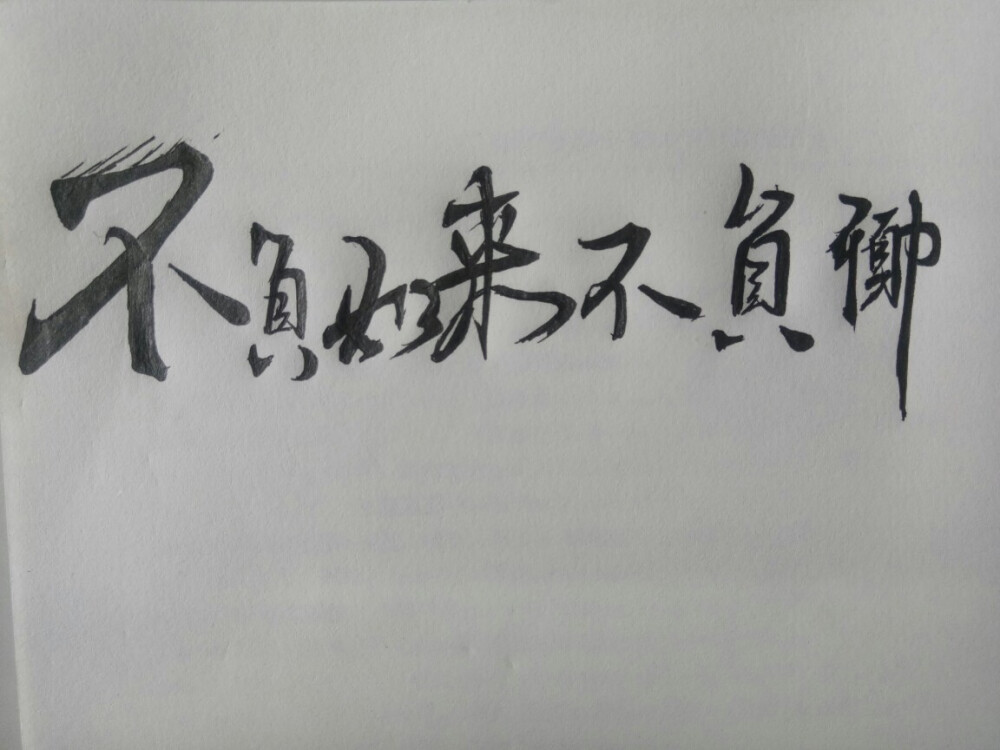 不負如來不負卿